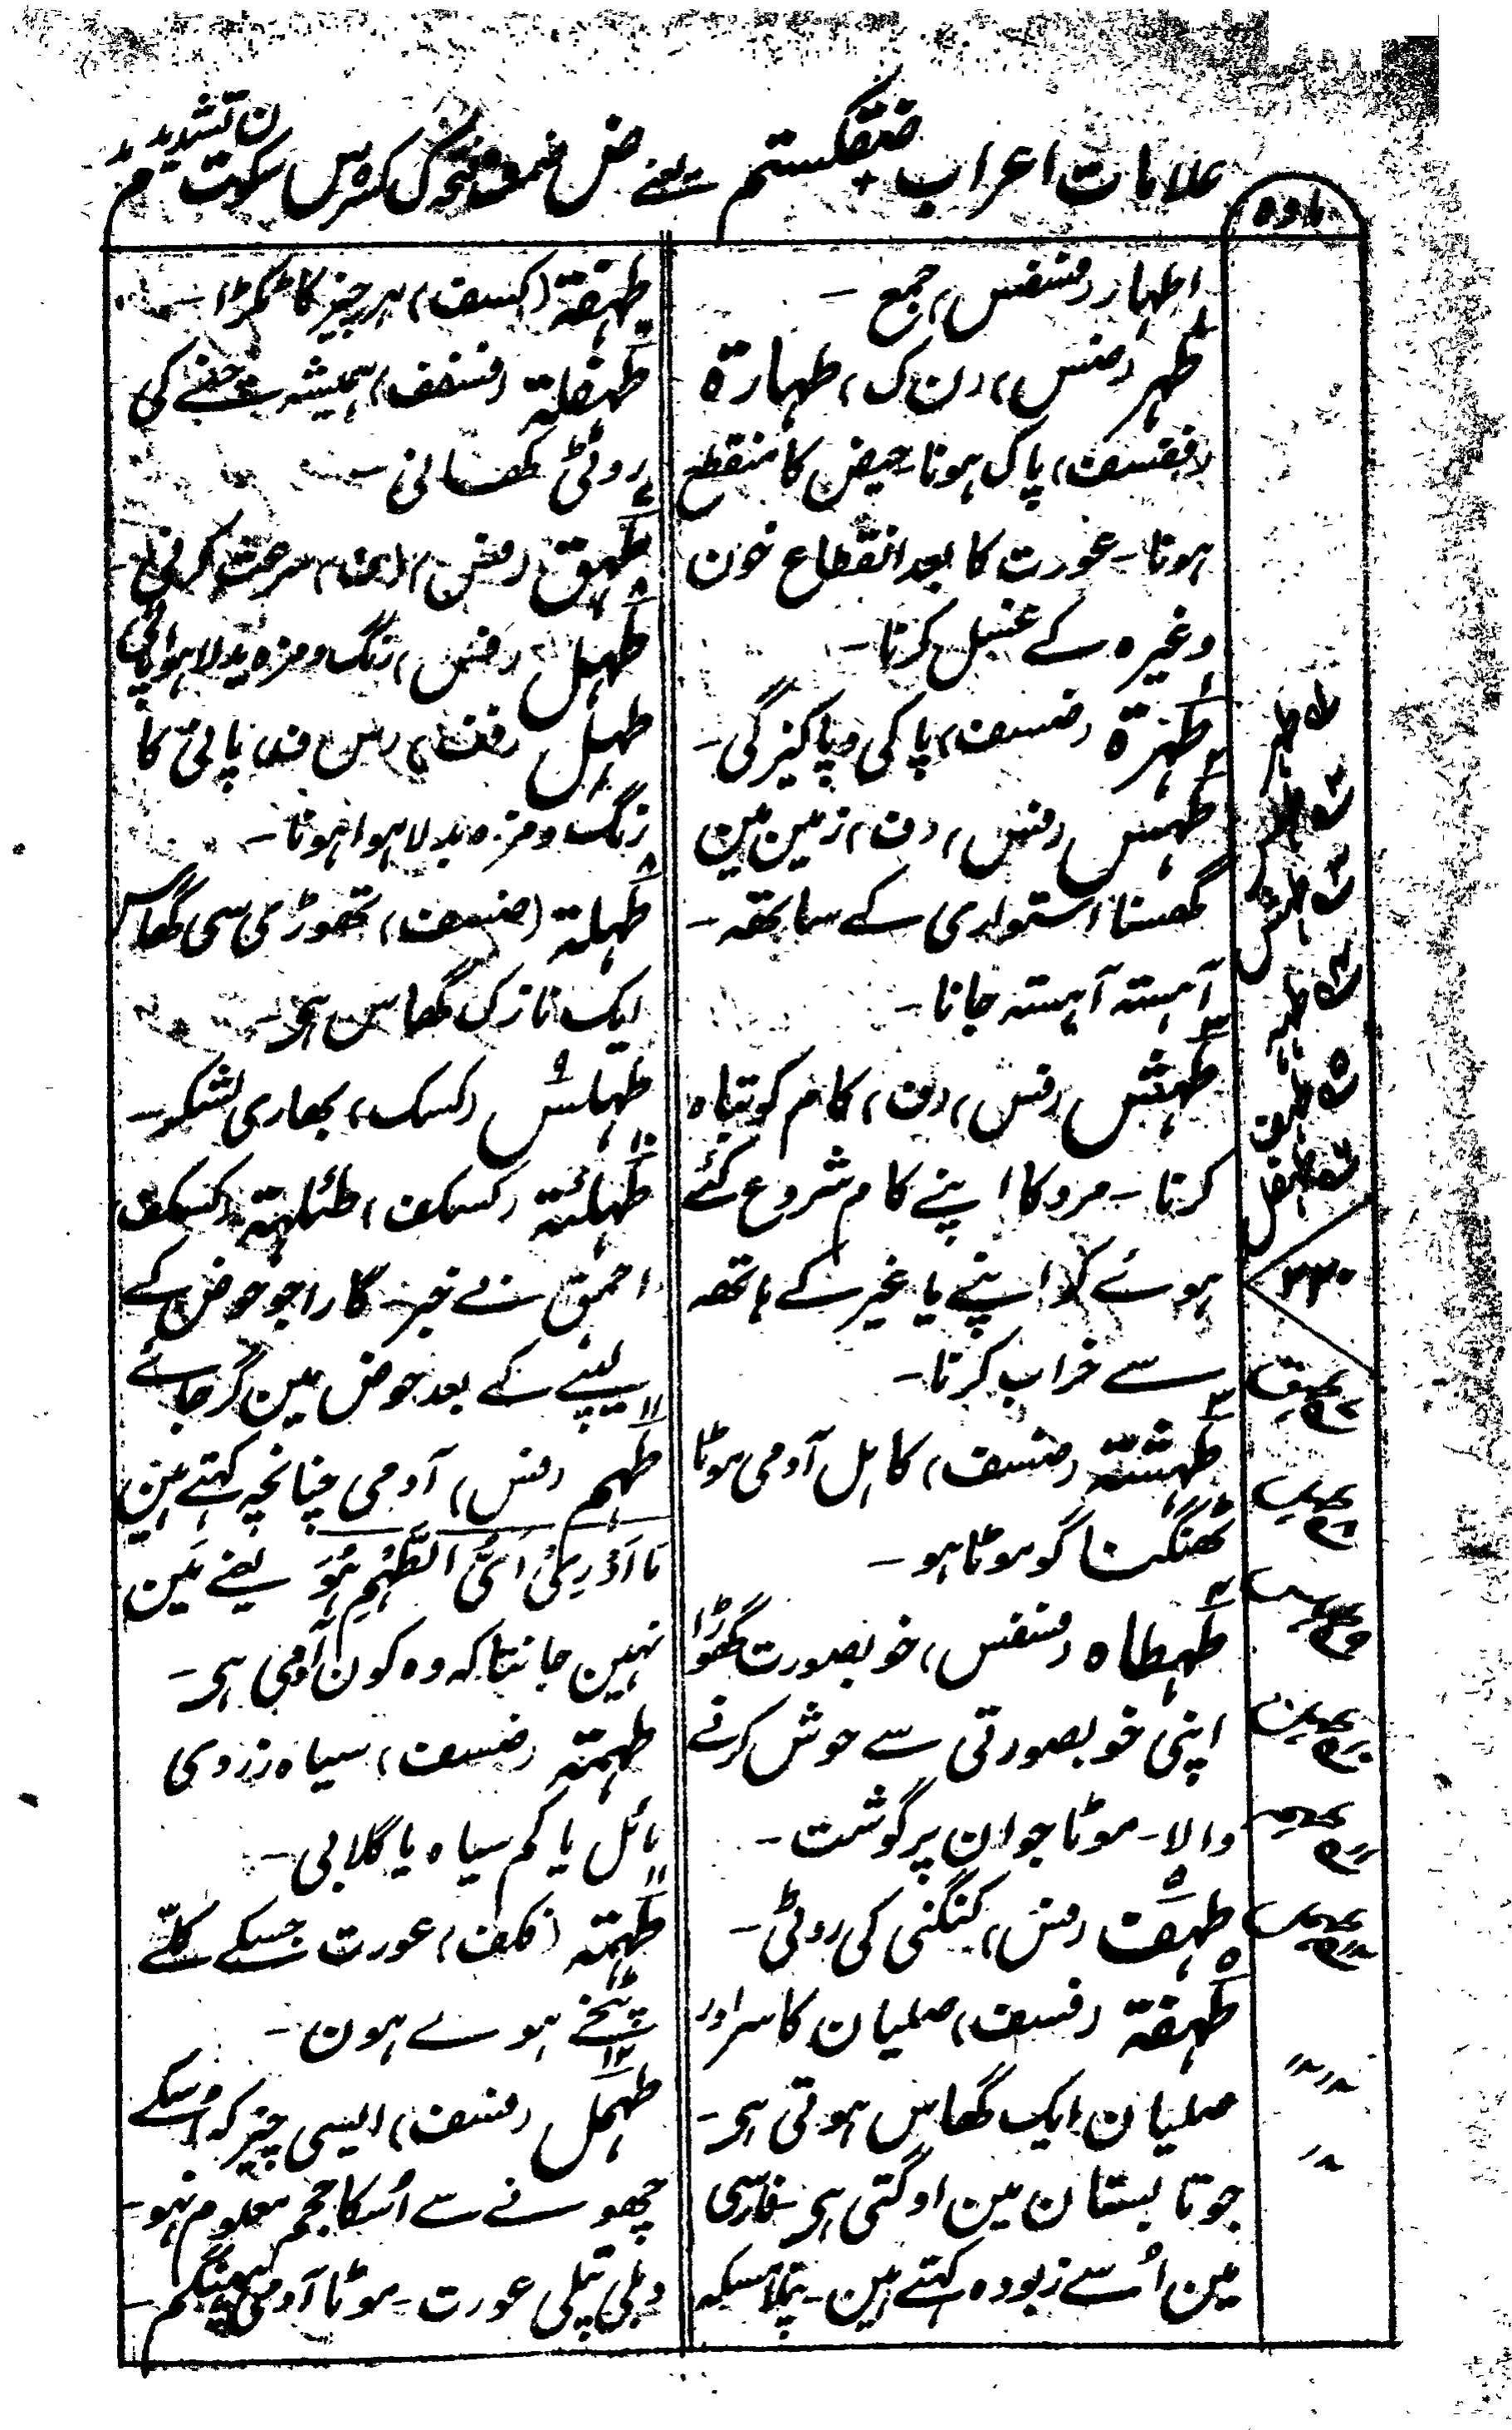 علامات اعراب ضفکستم یعنے ض ضمہ ف فتحہ ک کسرہ س سکوت م
ن تشدید
مادہ
اطہار (فسفس) جمع -
طہر (ضس) (ن ک) طہارۃ
(ففسف) پاک ہونا حیض کا منقطع
ہونا - عورت کا بعد انقطاع خون
وغیرہ کے غسل کرنا -
طہرۃ (ضسف) پاکی و پاکیزگی -
طہس (فس) (ف) زمین مین
گھسنا استواری کے ساتھ -
آہستہ آہستہ جانا -
طہش (فس) (ف) کام کو تباہ
کرنا - مرد کا اپنے کام شروع کئے
ہوئے کو اپنے یا غیر کے ہاتھ
سے خراب کرنا -
طہشتہ (ضسف) کاہل آدمی موٹا
ٹھنگنا گو موٹا ہو -
طہطاہ (فسفس) خوبصورت گھوڑا
اپنی خوبصورتی سے خوش کرنے
والا - موٹا جوان پر گوشت -
طہف (فس) کنگنی کی روٹی -
طہفۃ (فسف) صلیان کا سرا اور
صلیان ایک گھاس ہوتی ہی -
جو تابستان مین اوگتی ہی - فارسی
مین اُسے زبودہ کہتے ہین - پتلا مسکہ
طہفۃ (کسف) ہر چیز کا ٹکڑا -
طہفلۃ (فسفف) ہمیشہ چنے کی
روٹی کھانی -
طہق (فس) (ف) سرعت کرنی -
طہل (فس) رنگ و مزہ بدلا ہوا پانی
طہل (فف) (س ف) پانی کا
رنگ و مزہ بدلا ہوا ہونا -
طہلۃ (ضسف) تھوڑی سی گھاس
ایک نازک گھاس ہی -
طہلس (کسک) بھاری لشکر -
طہلئۃ (کسکف) طئلہتہ (کسکف)
احمق بے خبر - گارا جو حوض کے
لیپنے کے بعد حوض مین گر جائے
طہم (فس) آدمی چنانچہ کہتے ہین
مَا اَدْرِیْ اَیُّ الطَّہْمِ ہُوَ یعنے مین
نہین جانتا کہ وہ کون آدمی ہی -
طہمتہ (ضسف) سیاہ زردی
مائل یا کم سیاہ یا گلابی -
طہمتہ (فکف) عورت جسکے کلّے
پٹخے ہوے ہون -
طہمل (فسف) ایسی چیز کہ اُسکے
چھونے سے اُسکا حجم معلوم نہو -
دبلی پتلی عورت - موٹا آدمی بہینگم -
ط ہر
ط ہس
ط ہش
ط ہط
ط ہف
ط ہفل